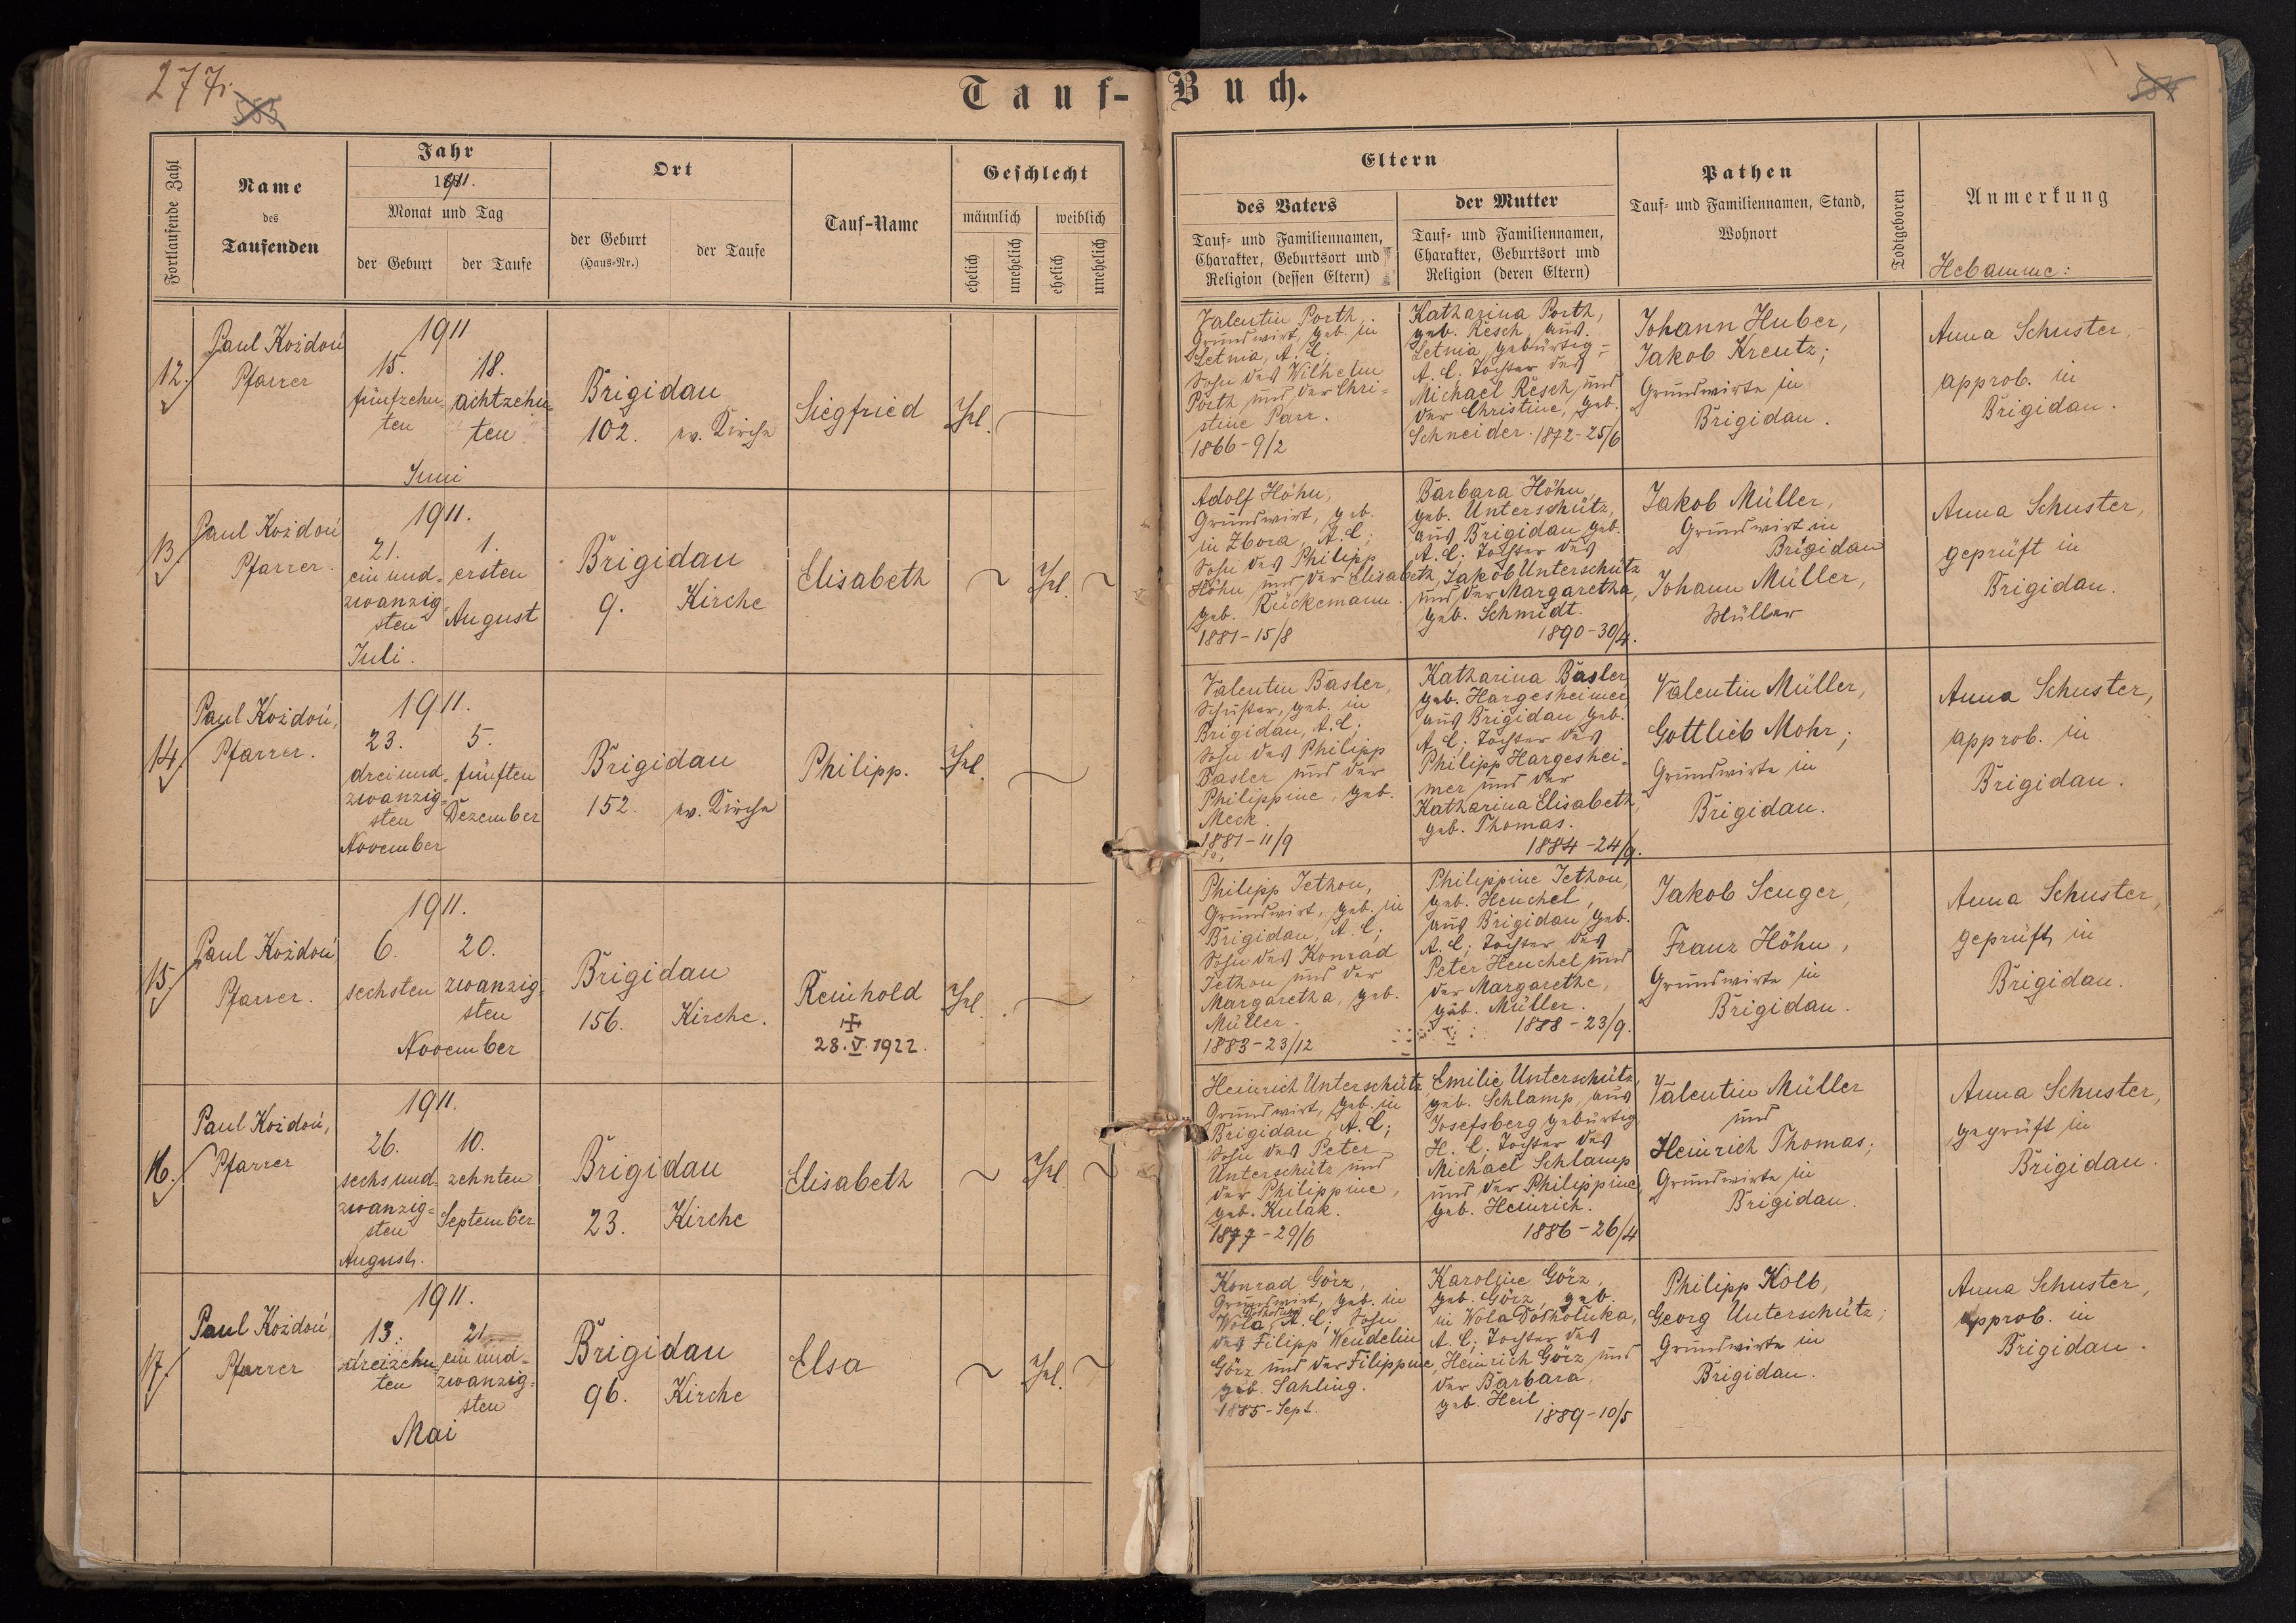 277.
Tauf-Buch.
Fortlaufende Zahl
Name
des
Taufenden
Jahr
1911.
Monat und Tag
der Geburt
der Taufe
Ort
der Geburt
(Haus-Nr.)
der Taufe
Tauf-Name
Geschlecht
männlich
weiblich
ehelich
unehelich
ehelich
unehelich
Eltern
des Vaters
Tauf- und Familiennamen,
Charakter, Geburtsort und
Religion (dessen Eltern)
der Mutter
Tauf- und Familiennamen,
Charakter, Geburtsort und
Religion (deren Eltern)
Pathen
Tauf- und Familiennamen, Stand,
Wohnort
Todtgeboren
Anmerkung
Hebamme:
12.
Paul Kożdoń
Pfarrer
1911
15.
fünfzehn-
ten
18.
achtzehn-
ten
Juni
Brigidau
102.
ev. Kirche
Siegfried
Ehel.
Valentin Porth,
Grundwirt, geb. in
Letnia, A. C.;
Sohn des Wilhelm
Porth und der Chri-
stine Parr.
1866-9/2
Katharina Porth,
geb. Resch, aus
Letnia gebürtig-
A. C. Tochter des
Michael Resch, und
der Christine, geb.
Schneider. 1872-25/6
Johann Huber,
Jakob Kreutz;
Grundwirte in
Brigidau.
Anna Schuster,
approb. in
Brigidau.
13.
Paul Kożdoń
Pfarrer.
1911.
21.
ein und-
zwanzig-
sten
Juli.
1.
ersten
August
Brigidau
9.
Kirche
Elisabeth
Ehel.
Adolf Höhn,
Grundwirt, geb.
in Zbora, A. C.;
Sohn des Philipp
Höhn und der Elisabeth,
geb. Rückemann.
1881-15/8
Barbara Höhn,
geb. Unterschütz,
aus Brigidau geb.
A. C. Tochter des
Jakob Unterschütz
und der Margaretha,
geb. Schmidt.
1890-30/4.
Jakob Müller,
Grundwirt in
Brigidau
Johann Müller,
Müller
Anna Schuster,
geprüft in
Brigidau.
14.
Paul Kożdoń,
Pfarrer.
1911.
23.
drei und-
zwanzig-
sten
November
5.
fünften
Dezember
Brigidau
152.
ev. Kirche
Philipp.
Ehel.
Valentin Basler,
Schuster, geb. in
Brigidau, A. C.;
Sohn des Philipp
Basler und der
Philippine, geb.
Meck.
1881-11/9
Katharina Basler
geb. Hargesheimer,
aus Brigidau geb.
A. C.; Tochter des
Philipp Hargeshei-
mer und der
Katharina Elisabeth,
geb. Thomas.
1884-24/9.
Valentin Müller,
Gottlieb Mohr;
Grundwirte in
Brigidau.
Anna Schuster,
approb. in
Brigidau.
15.
Paul Kożdoń
Pfarrer.
1911.
6.
sechsten
20.
zwanzig-
sten
November
Brigidau
156.
Kirche.
Reinhold
28. V. 1922.
Ehel.
Philipp Jethon,
Grundwirt, geb. in
Brigidau, A. C.;
Sohn des Konrad
Jethon und der
Margaretha, geb.
Müller.
1883-23/12
Philippine Jethon,
geb. Heuchel,
aus Brigidau geb.
A. C.; Tochter des
Peter Heuchel und
der Margarethe,
geb. Müller.
1888-23/9.
Jakob Senger,
Franz Höhn,
Grundwirte in
Brigidau.
Anna Schuster,
geprüft in
Brigidau.
16.
Paul Kożdoń,
Pfarrer
1911.
26.
sechs und-
zwanzig-
sten
August.
10.
zehnten
September
Brigidau
23.
Kirche
Elisabeth
Ehel.
Heinrich Unterschütz
Grundwirt, geb. in
Brigidau, A. C.;
Sohn des Peter
Unterschütz und
der Philippine,
geb. Kulak.
1877-29/6
Emilie Unterschütz,
geb. Schlamp, aus
Josefsberg gebürtig
H. C. Tochter des
Michael Schlamp
und der Philippine
geb. Heinrich.
1886-26/4
Valentin Müller
und
Heinrich Thomas;
Grundwirte in
Brigidau.
Anna Schuster,
geprüft in
Brigidau.
17.
Paul Kożdoń,
Pfarrer
1911.
13.
dreizehn-
ten
21.
ein und-
zwanzig-
sten
Mai
Brigidau
96.
Kirche
Elsa
Ehel.
Konrad Görz,
Grundwirt, geb. in
Wola, A. C.; Sohn
des Filipp Wendelin
Görz und der Filippine,
geb. Sahling.
1885-Sept.
Karoline Görz,
geb. Görz, geb.
in Wola Dołhołuka,
A. C; Tochter des
Heinrich Görz und
der Barbara,
geb. Heil
1889-10/5
Philipp Kolb,
Georg Unterschütz;
Grundwirte in
Brigidau.
Anna Schuster,
approb. in
Brigidau.